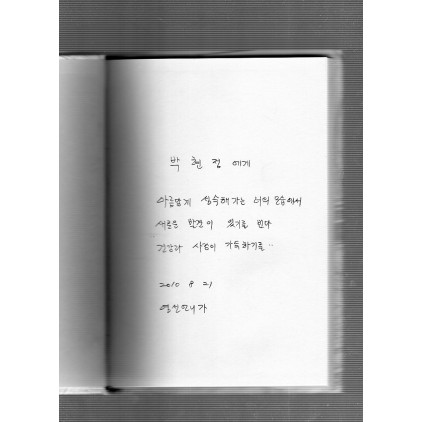 박 현 정 에게
아름답게 성숙해가는 너의 모습에서
새로운 발견이 있기를 빈다
건강과 사랑이 가득하기를..
2010 8 21
영선언니가